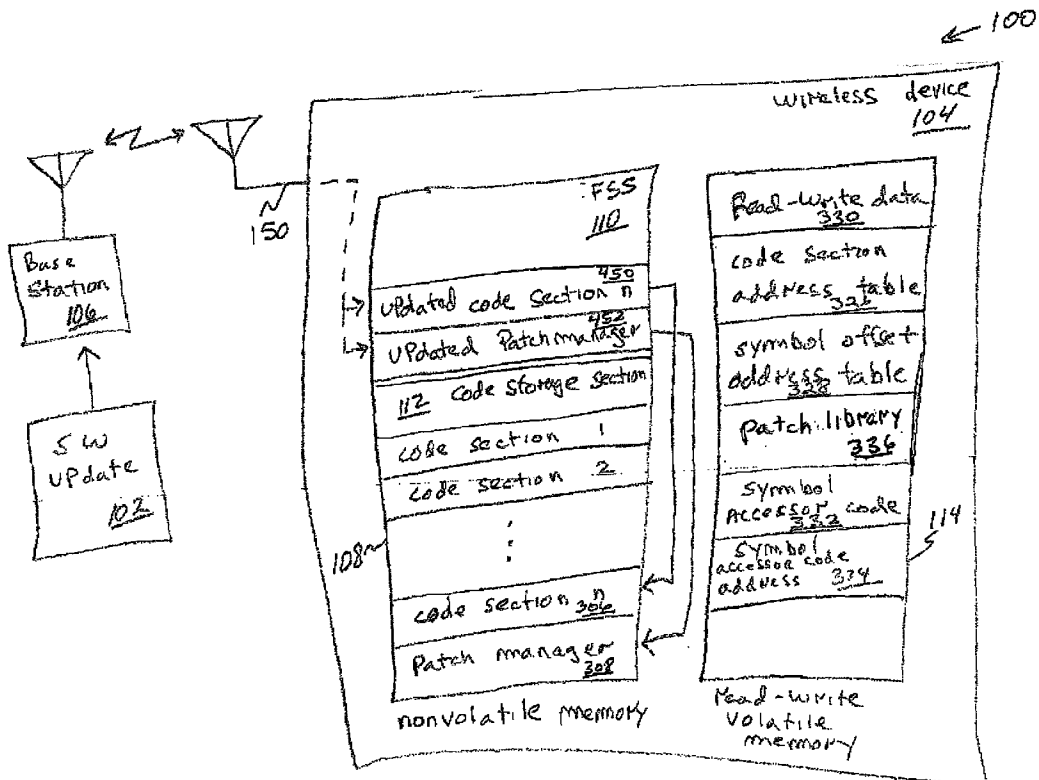 100
wireless device
104
Base
Station
106
SW
update
102
150
FSS
110
450
updated code section n
452
updated Patch manager
112 code storage section
code section 1
code section 2
108
code section n
306
Patch manager
308
nonvolatile memory
Read-write data
330
code section
address table
326
symbol offset
address table
328
patch library
336
symbol
Accessor code
332
symbol
accessor code
address 334
114
read-write
volatile
memory